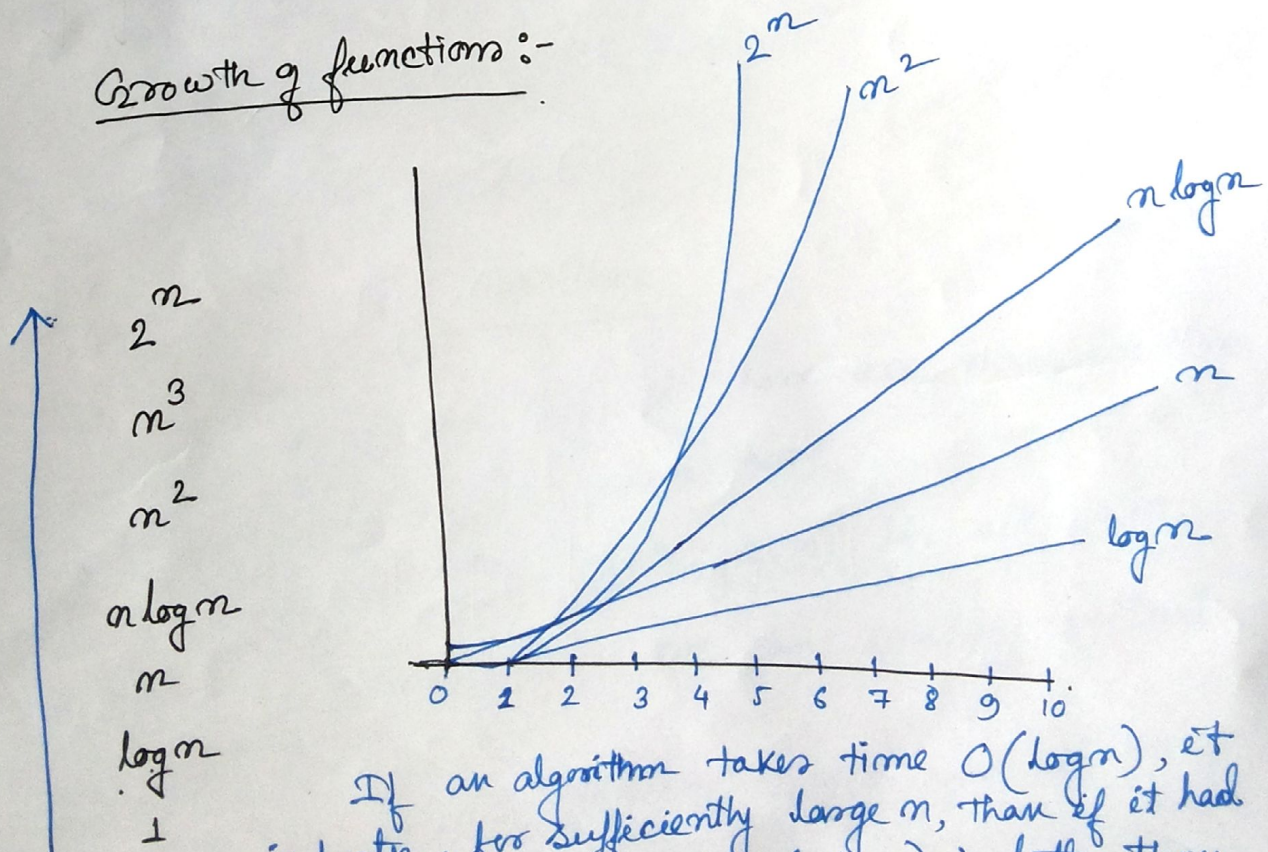 Growth of functions :-
2^n
n^2
n log n
n
log n
2^n
n^3
n^2
n log n
n
log n
1
0 1 2 3 4 5 6 7 8 9 10
If an algorithm takes time O(log n), it
for sufficiently large n, than if it had